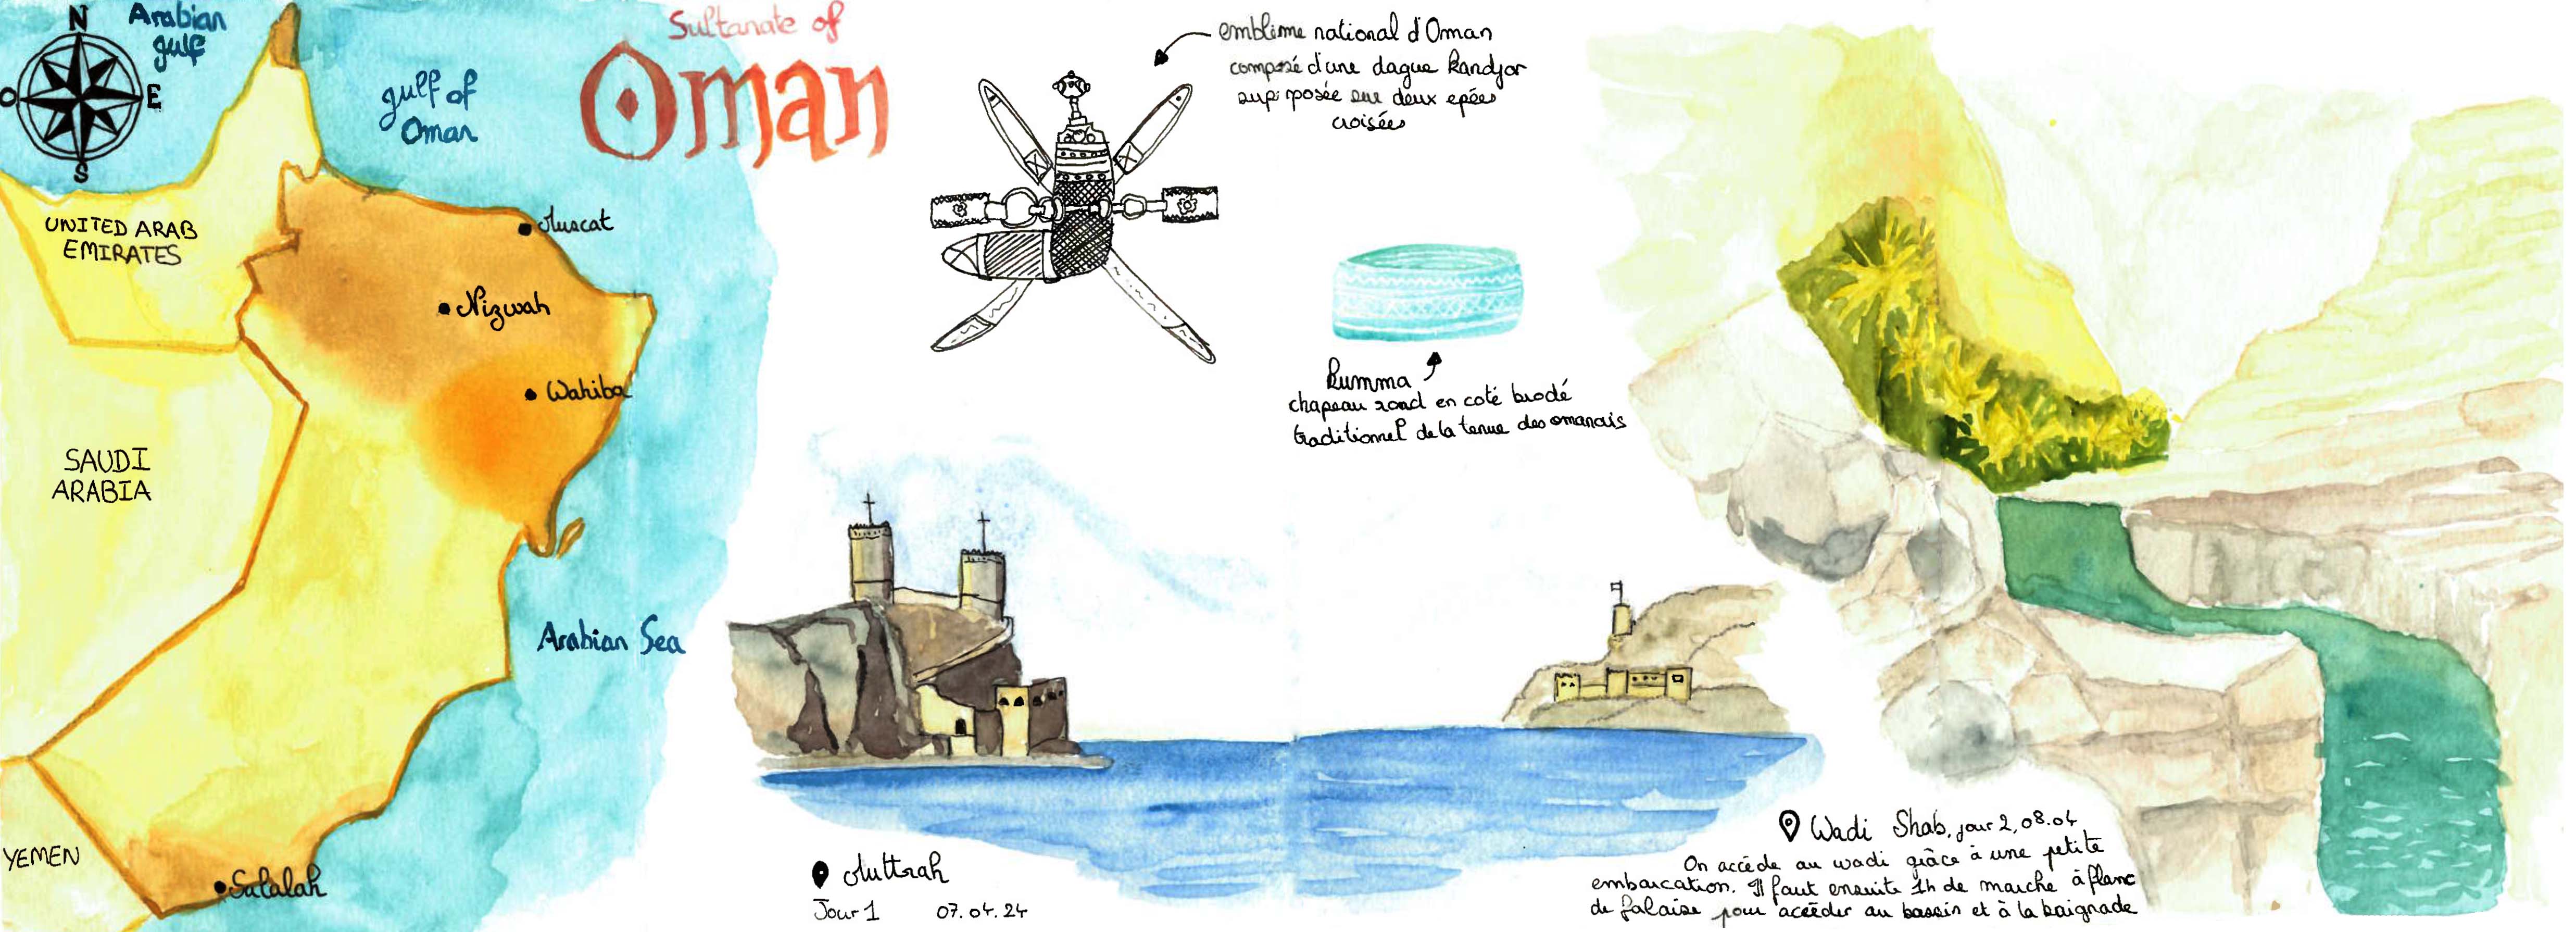 N
O
E
S
Arabian
gulf
gulf of
Oman
Sultanate of
Oman
UNITED ARAB
EMIRATES
Muscat
Nizwah
Wahiba
SAUDI
ARABIA
Arabian Sea
YEMEN
Salalah
emblème national d'Oman
composé d'une dague kandjar
superposée sur deux epées
croisées
kumma
chapeau rond en coté brodé
traditionnel de la tenue des omanais
Muttrah
Jour 1 07.04.24
Wadi Shab, jour 2, 08.04
On accède au wadi grâce à une petite
embarcation. Il faut ensuite 1h de marche à flanc
de falaise pour accéder au bassin et à la baignade